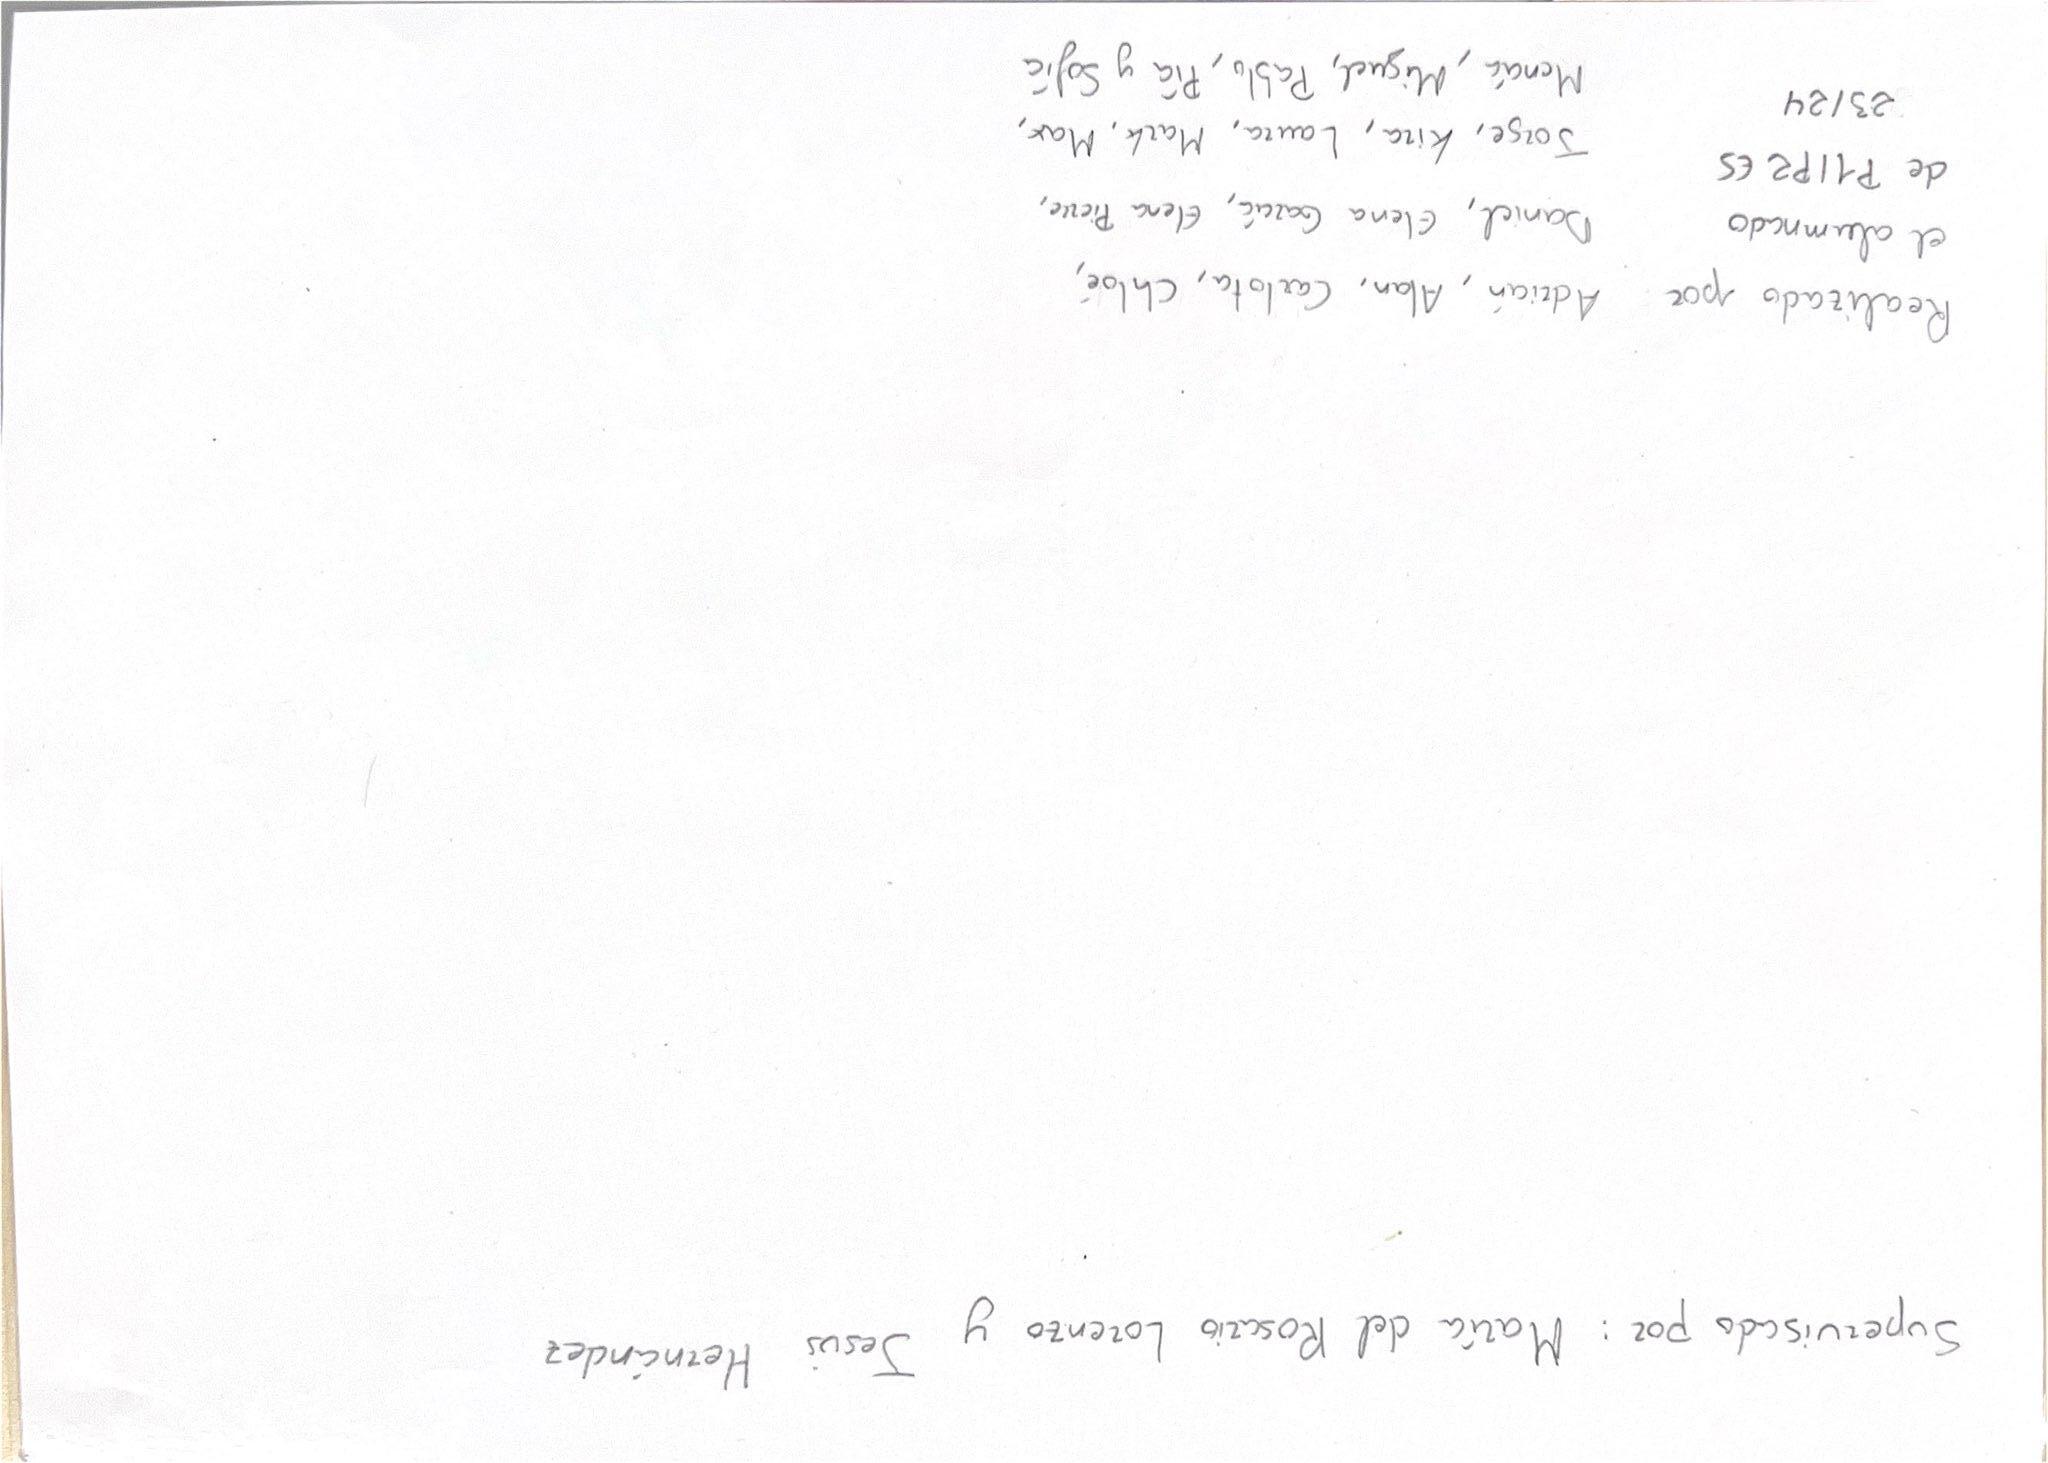 Supervisado por: María del Rosario Lorenzo y Jesús Hernández
Realizado por Adrián, Alan, Carlota, Chloé,
el alumnado Daniel, Elena García, Elena Pierre,
de P1/P2 ES Jorge, Kira, Laura, Mark, Max,
23/24 Mencía, Miguel, Pablo, Pía y Sofía